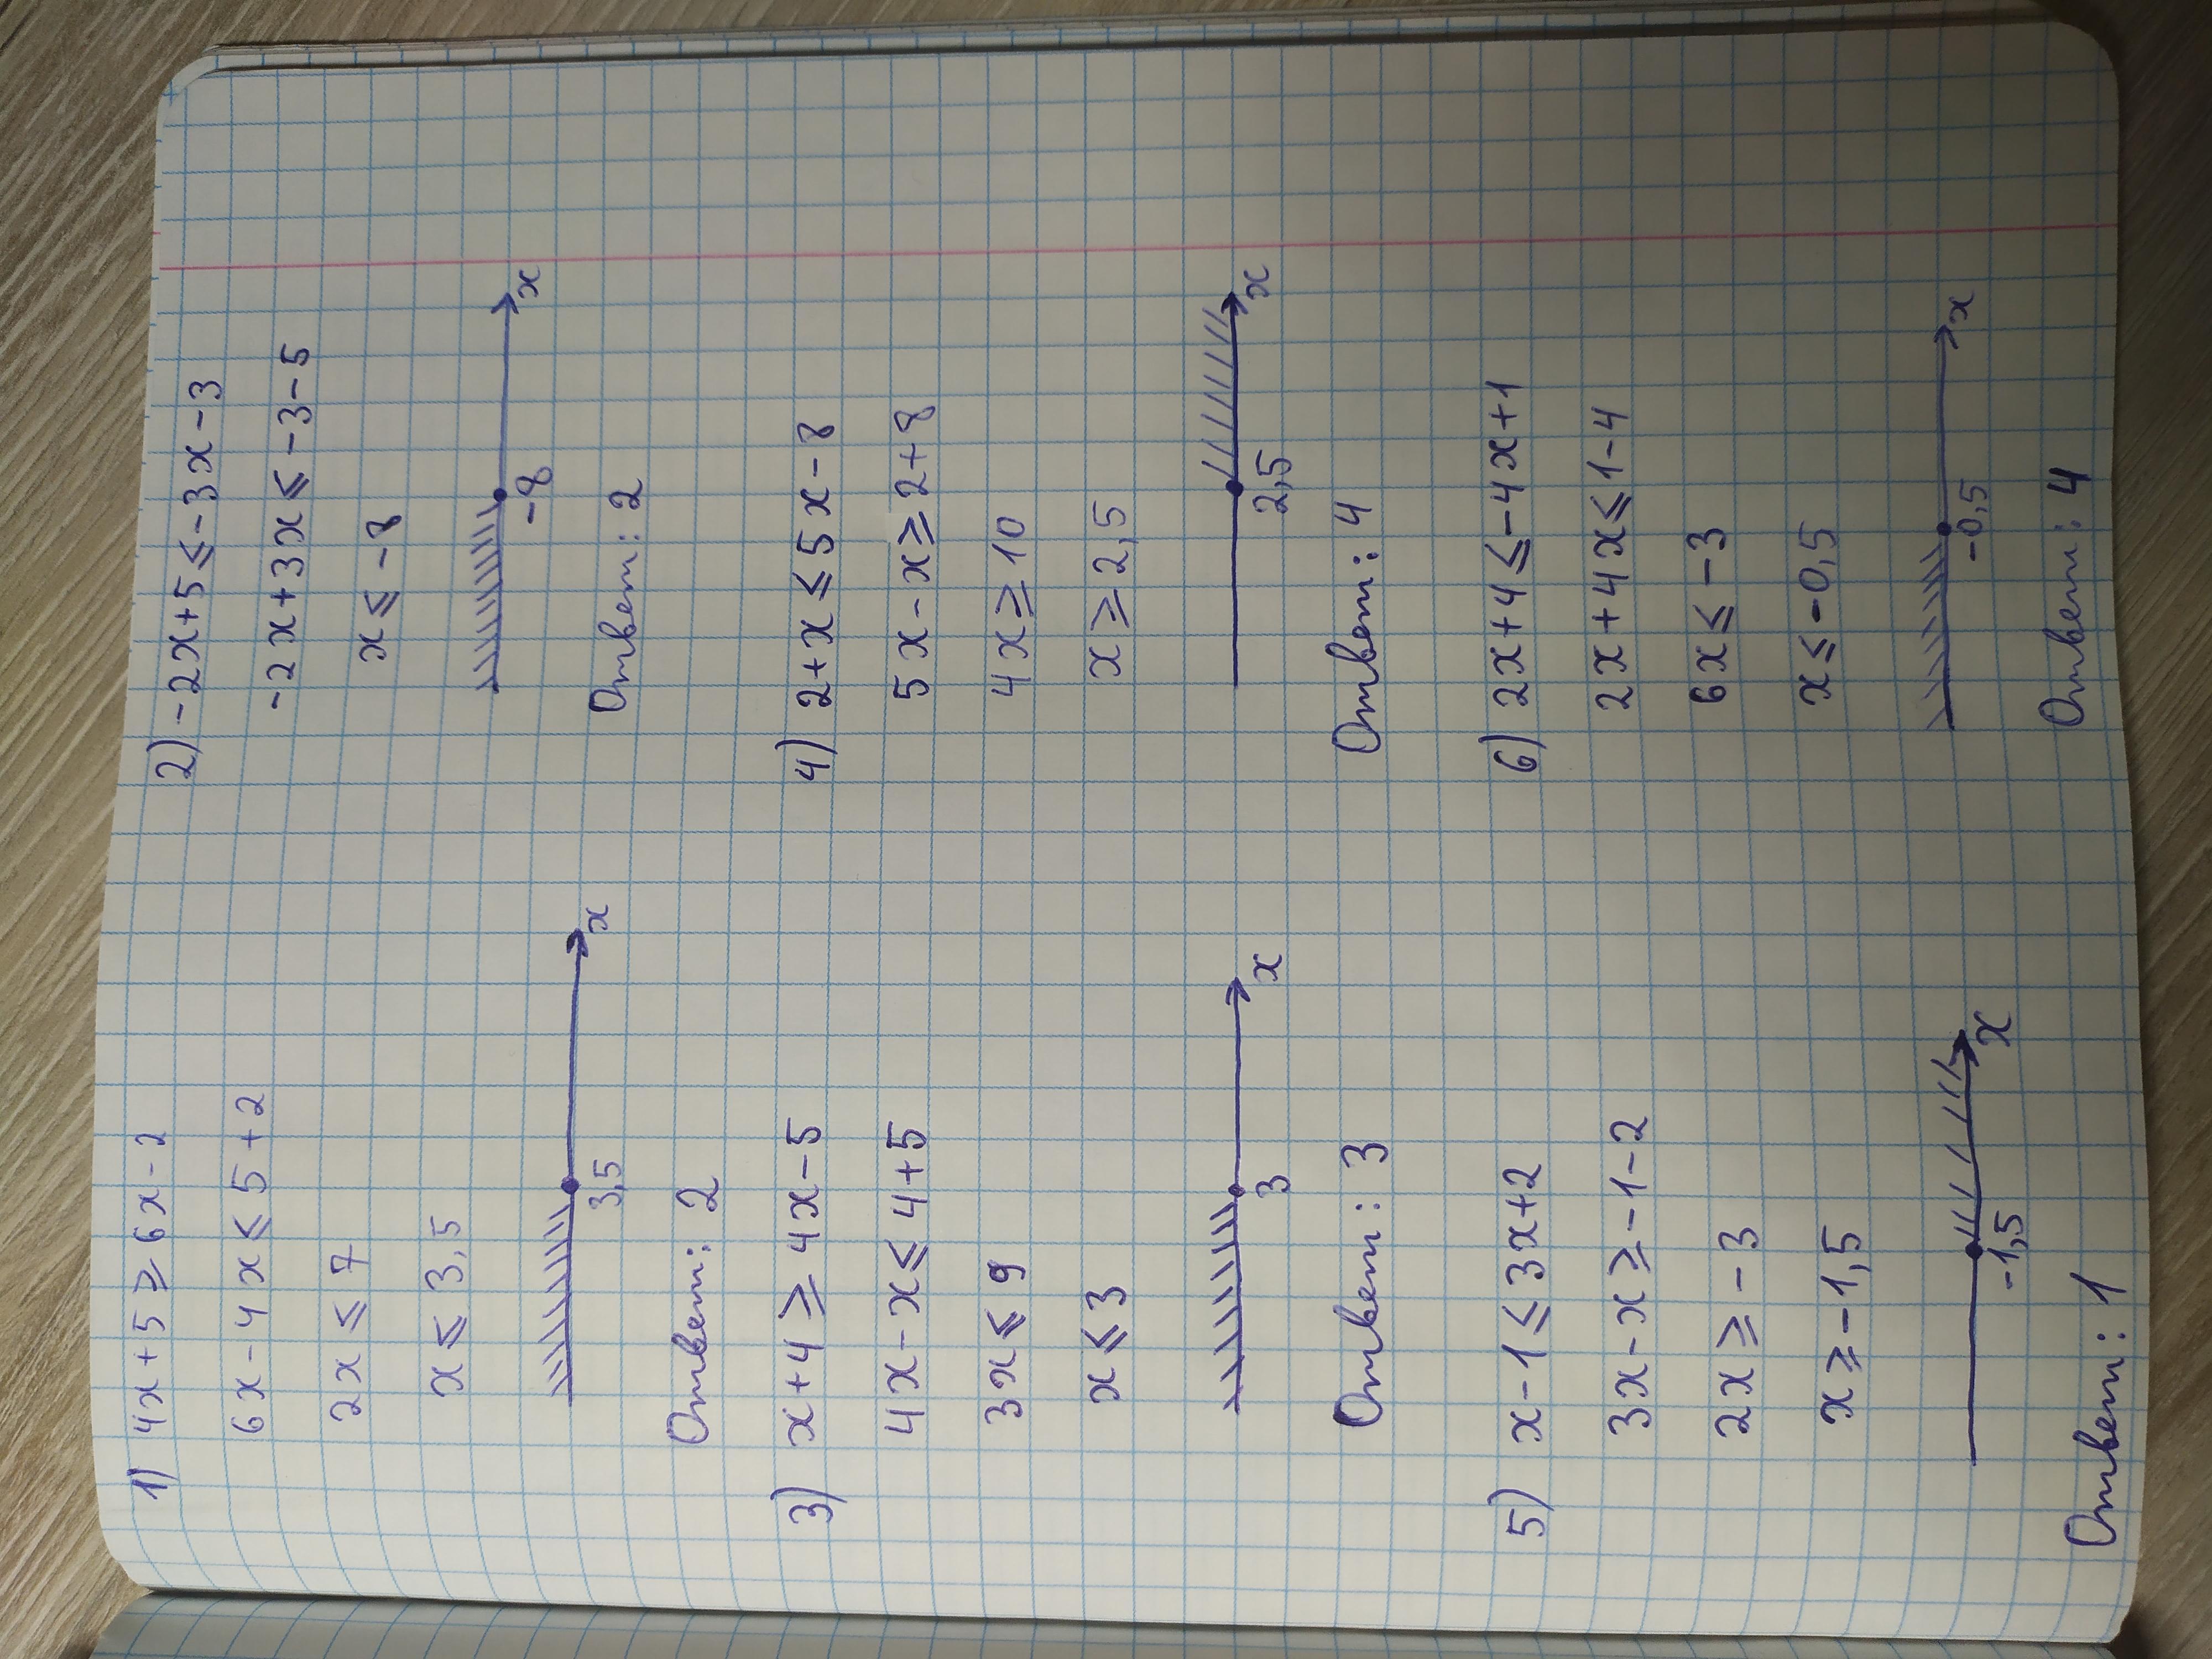 1) 4x+5⩾6x-2
6x-4x⩽5+2
2x⩽7
x⩽3,5
3,5
x
Ответ: 2
2) -2x+5⩽-3x-3
-2x+3x⩽-3-5
x⩽-8
-8
x
Ответ: 2
3) x+4⩾4x-5
4x-x⩽4+5
3x⩽9
x⩽3
3
x
Ответ: 3
4) 2+x⩽5x-8
5x-x⩾2+8
4x⩾10
x⩾2,5
2,5
x
Ответ: 4
5) x-1⩽3x+2
3x-x⩾-1-2
2x⩾-3
x⩾-1,5
-1,5
x
Ответ: 1
6) 2x+4⩽-4x+1
2x+4x⩽1-4
6x⩽-3
x⩽-0,5
-0,5
x
Ответ: 4